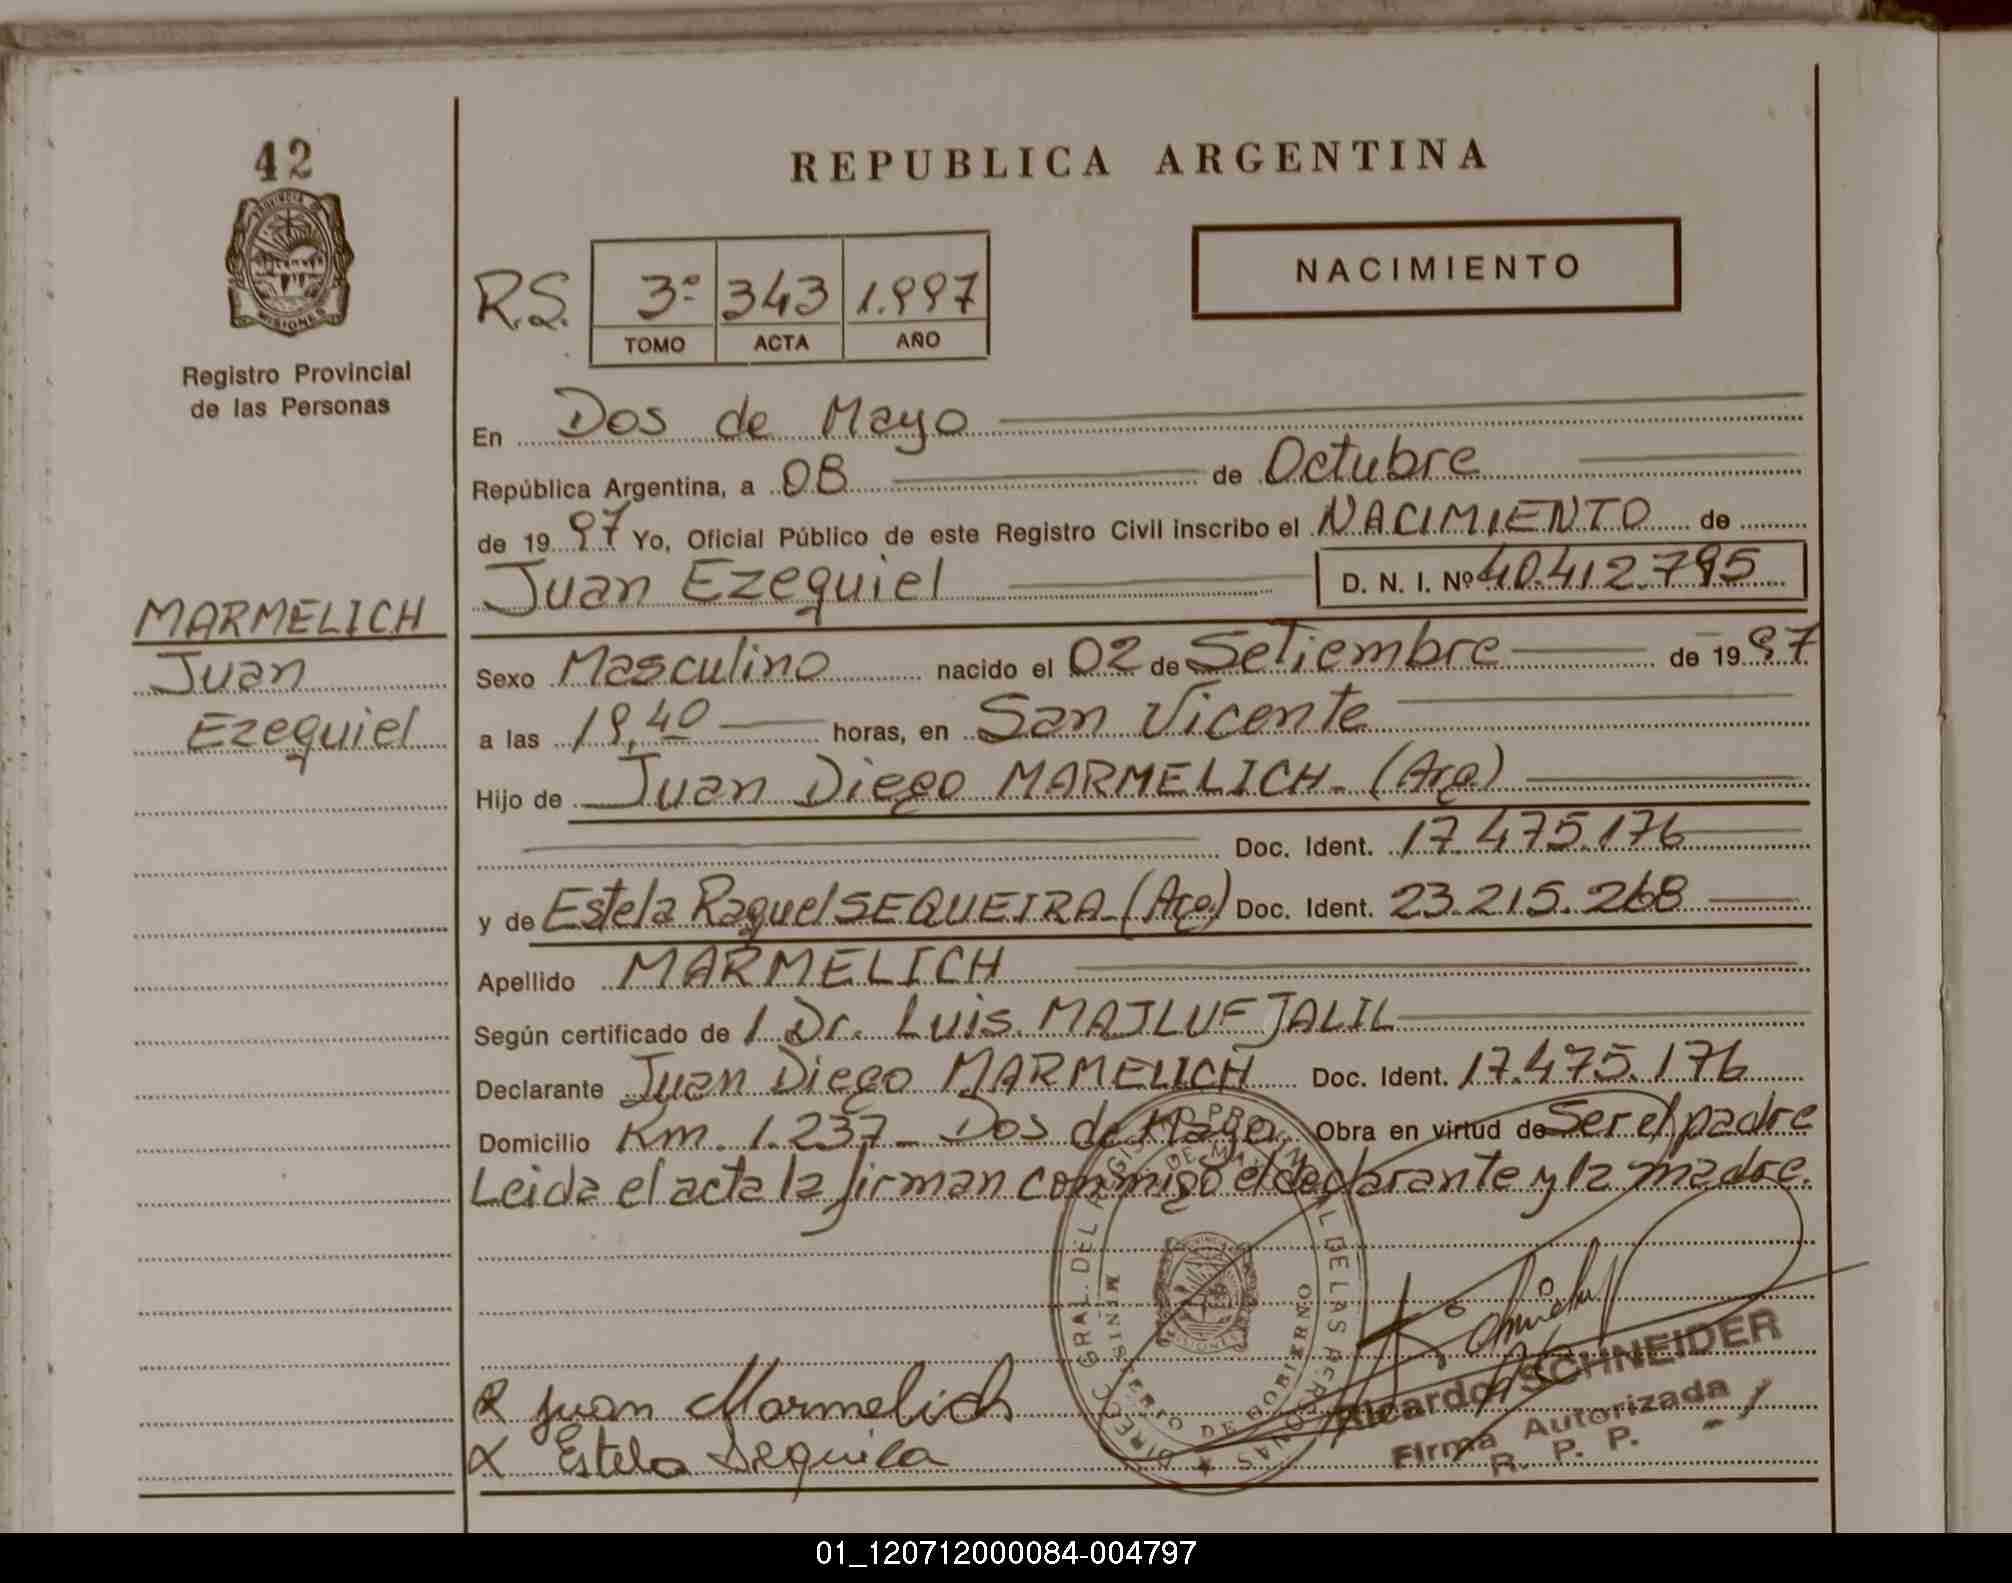 42
REPUBLICA ARGENTINA
PROVINCIA DE
MISIONES
Registro Provincial
de las Personas
NACIMIENTO
R.S. 3º 343 1.997
TOMO ACTA AÑO
En Dos de Mayo
República Argentina, a 08 de Octubre
de 1997 Yo, Oficial Público de este Registro Civil inscribo el NACIMIENTO de
Juan Ezequiel D. N. I. Nº 40.412.795
MARMELICH
Juan
Ezequiel
Sexo Masculino nacido el 02 de Setiembre de 1997
a las 19,40 horas, en San Vicente
Hijo de Juan Diego MARMELICH. (Arg.)
Doc. Ident. 17.475.176
y de Estela Raquel SEQUEIRA (Arg.) Doc. Ident. 23.215.268
Apellido MARMELICH
Según certificado de 1 Dr. Luis MAJLUF JALIL
Declarante Juan Diego MARMELICH Doc. Ident. 17.475.176
Domicilio Km. 1.237 - Dos de Mayo. Obra en virtud de Ser el padre
Leida el acta la firman conmigo el declarante y la madre.
DIREC. GRAL. DEL REGISTRO PROVINCIAL DE LAS PERSONAS
DE MAYO
MINISTERIO DE GOBIERNO
MISIONES
Ricardo SCHNEIDER
Firma Autorizada
R. P. P.
x Juan Marmelich
x Estela Sequeira
01_120712000084-004797